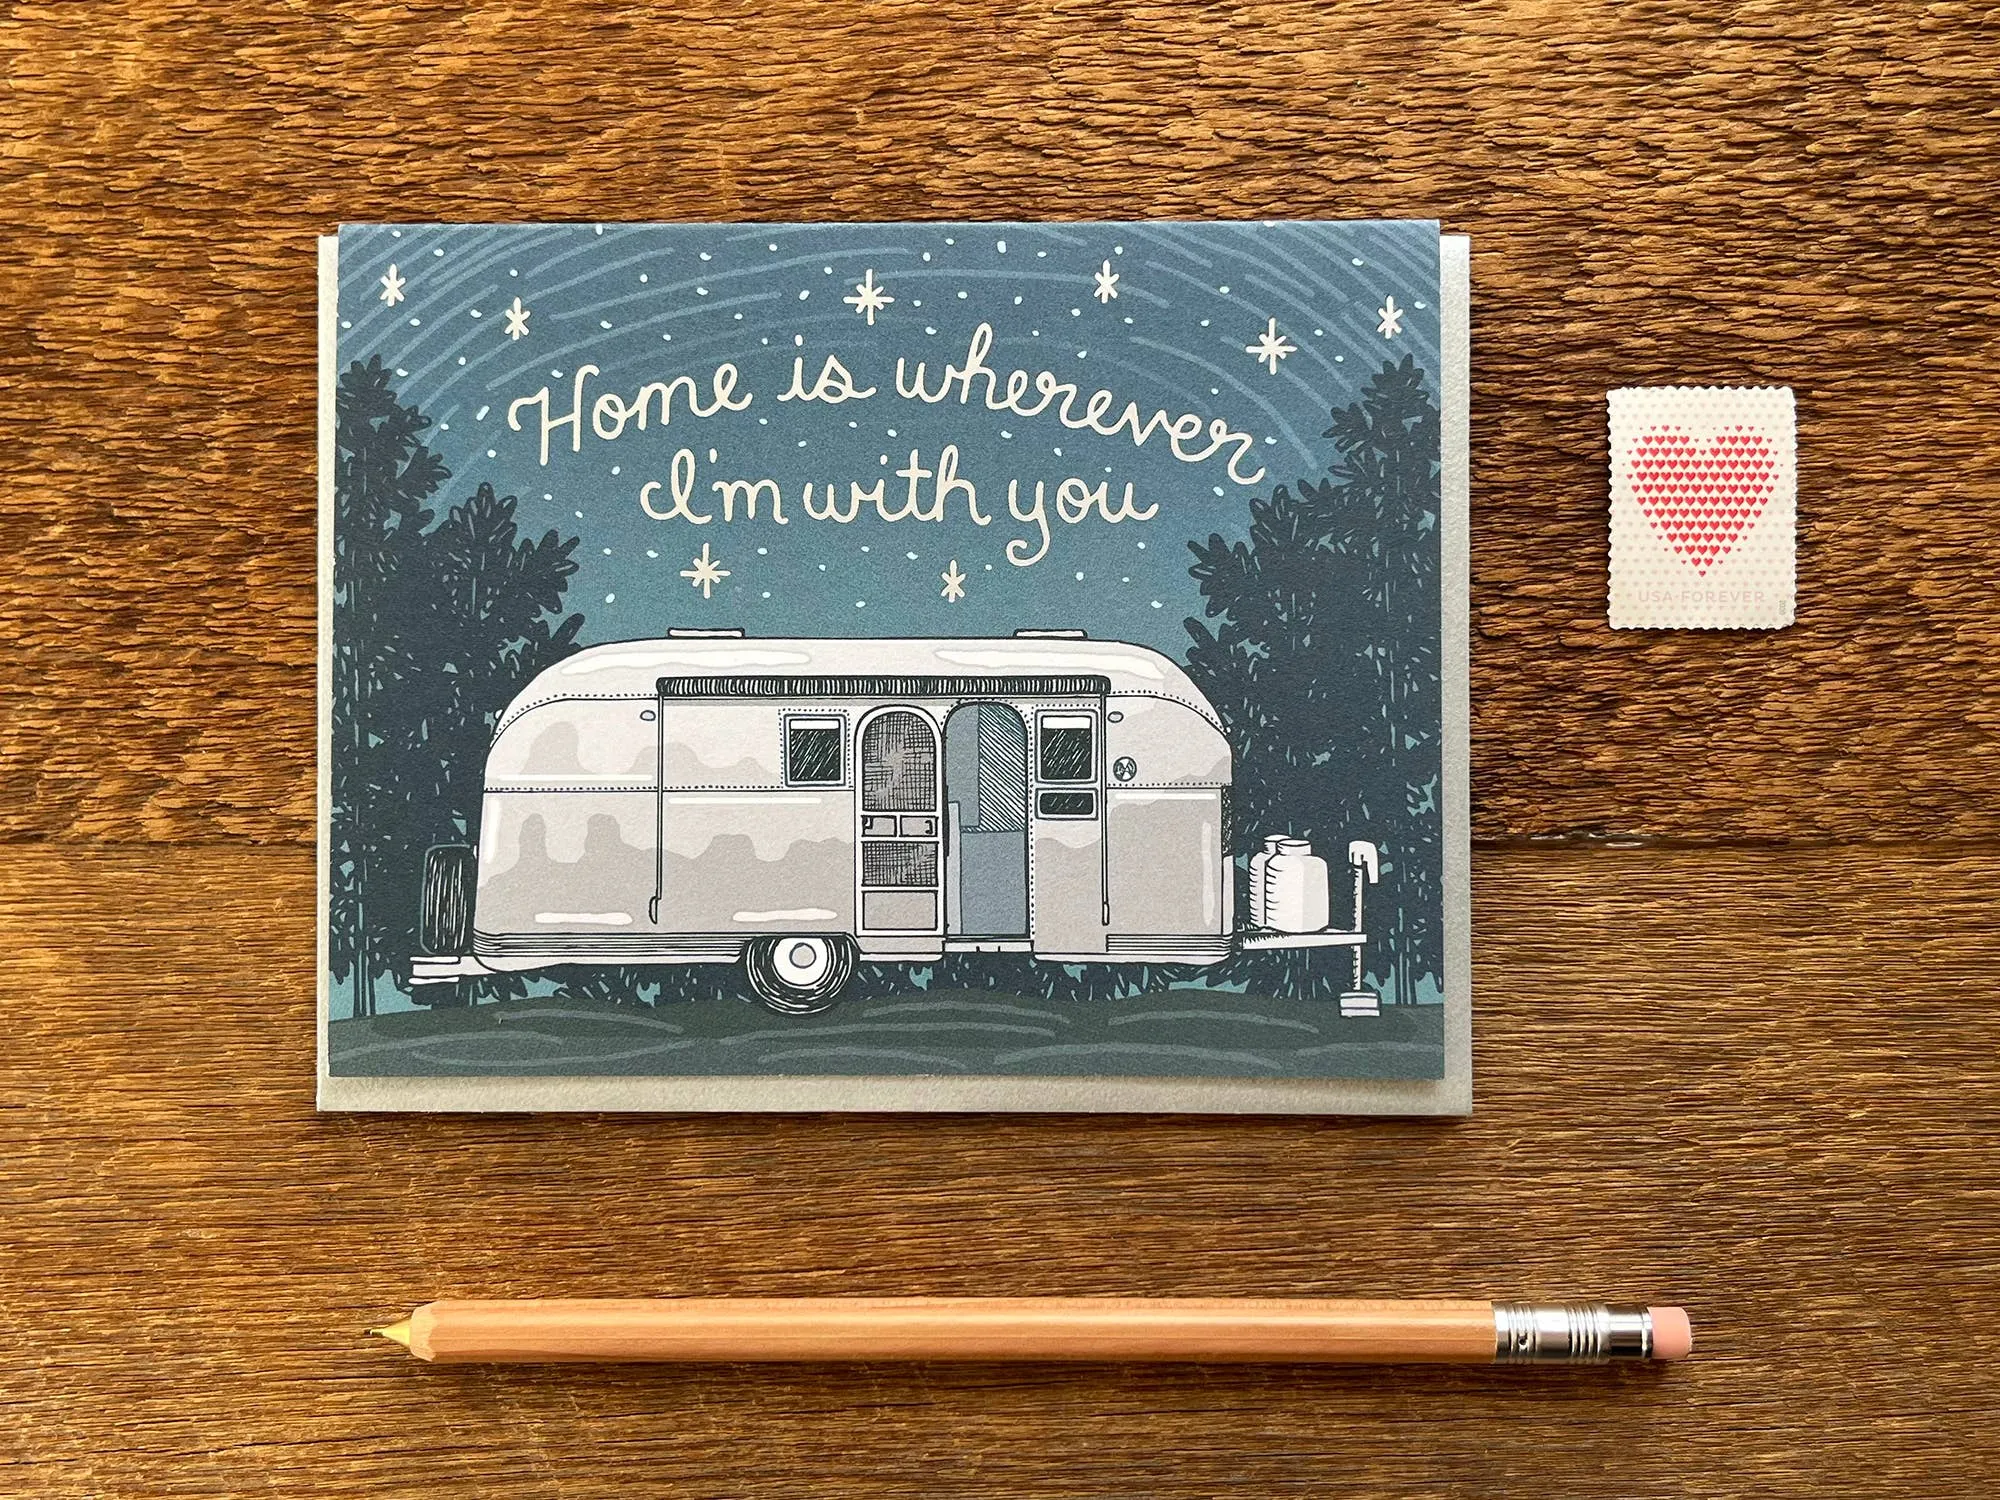 Home is wherever
I'm with you
USA·FOREVER